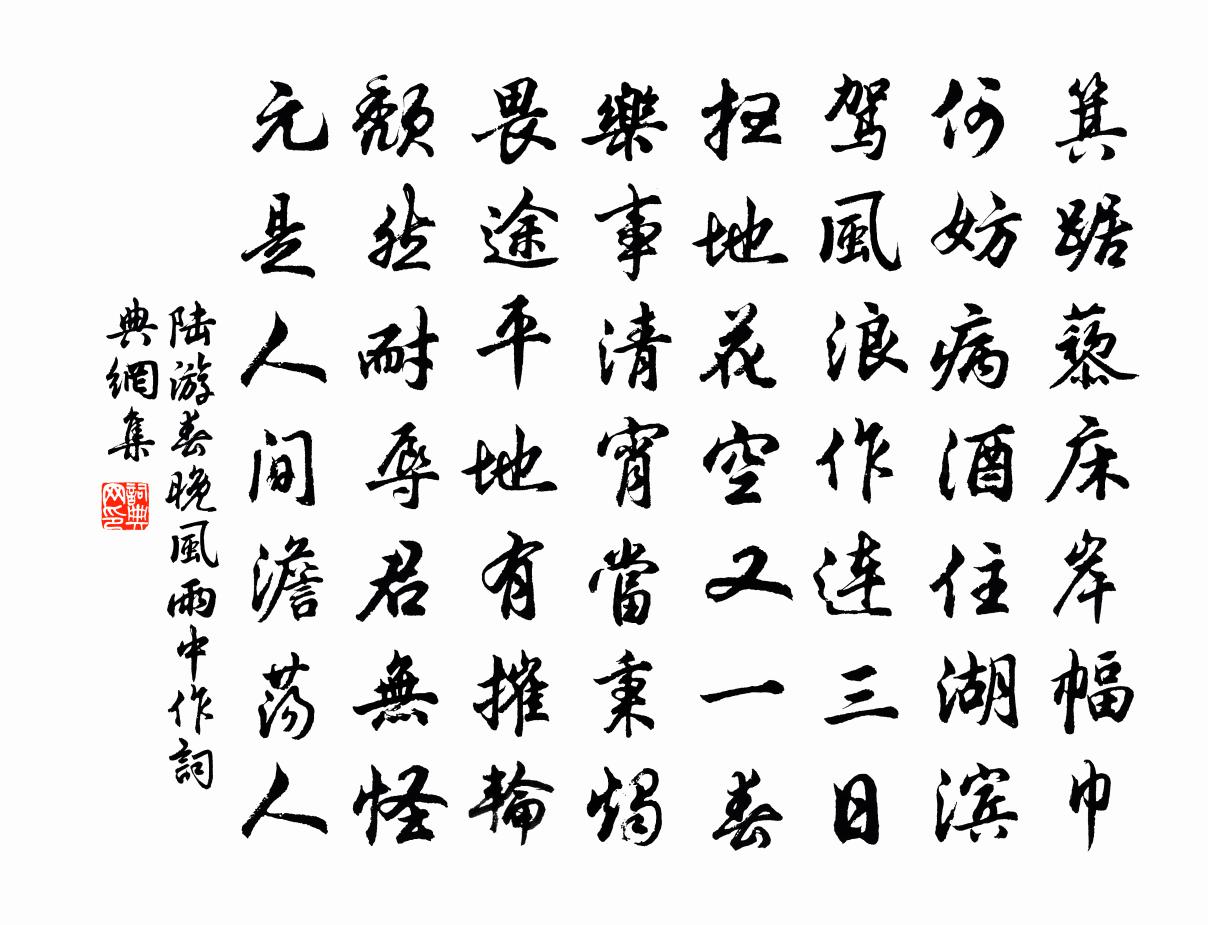 箕踞藜床岸幅巾
何妨病酒住湖滨
駕風浪作連三日
扫地花空又一春
樂事清宵當秉燭
畏途平地有摧輪
頹然耐辱君無怪
元是人間澹蕩人
陸游春晚風雨中作詞
典網集
詞典网印